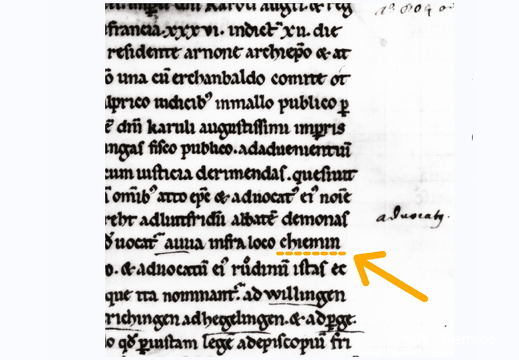 francia.xxxvi.indict xii. die
residente arnone archiepo & at
o una cū erchanbaldo comite ot
alprico iudicib' in mallo publico p
dm̄ karuli augustissimi impris
ngas fisco publico.ad aduenientiū
cum iusticia derimendas.quesiuit
omib' atto epc & aduocat' ei' noīe
reht ad liutfridū abbatē de monas
uocat auua infra loco chiemin
o. & aduocatū ei' rūdinū istas ec
que ita nominant. ad willingen
richingen ad hegelingen.& ad pge.
o qd p iustam legē ad episcopiū fri
aduocatq.